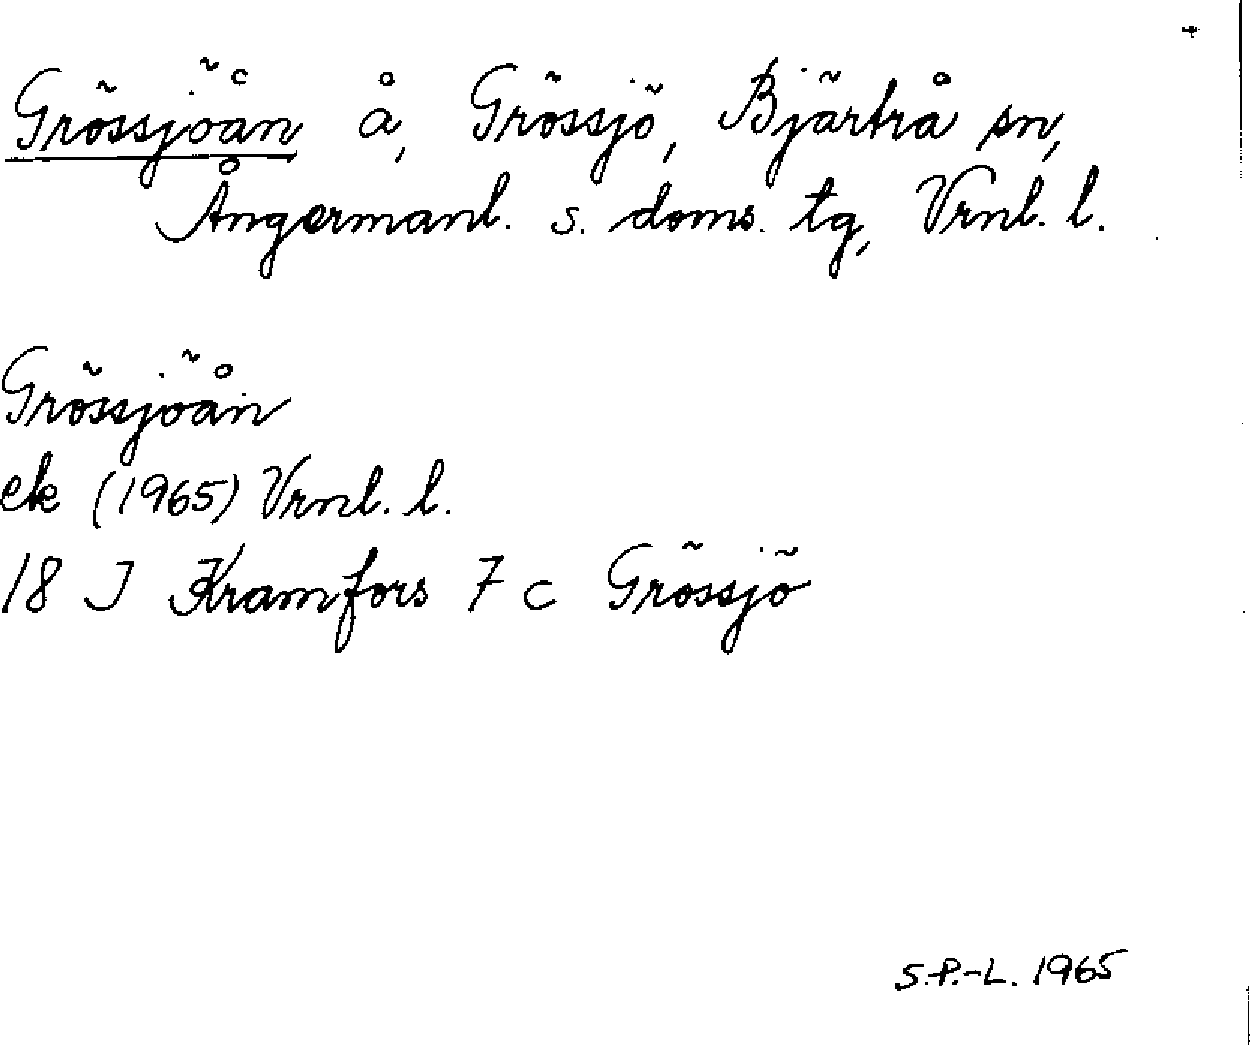 Grössjöån å, Grössjö, Bjärtrå sn,
Ångermanl. s. doms. tg, Vrnl. l.
Grössjöån
ek (1965) Vrnl. l.
18 J Kramfors 7 c Grössjö
S.P.-L. 1965